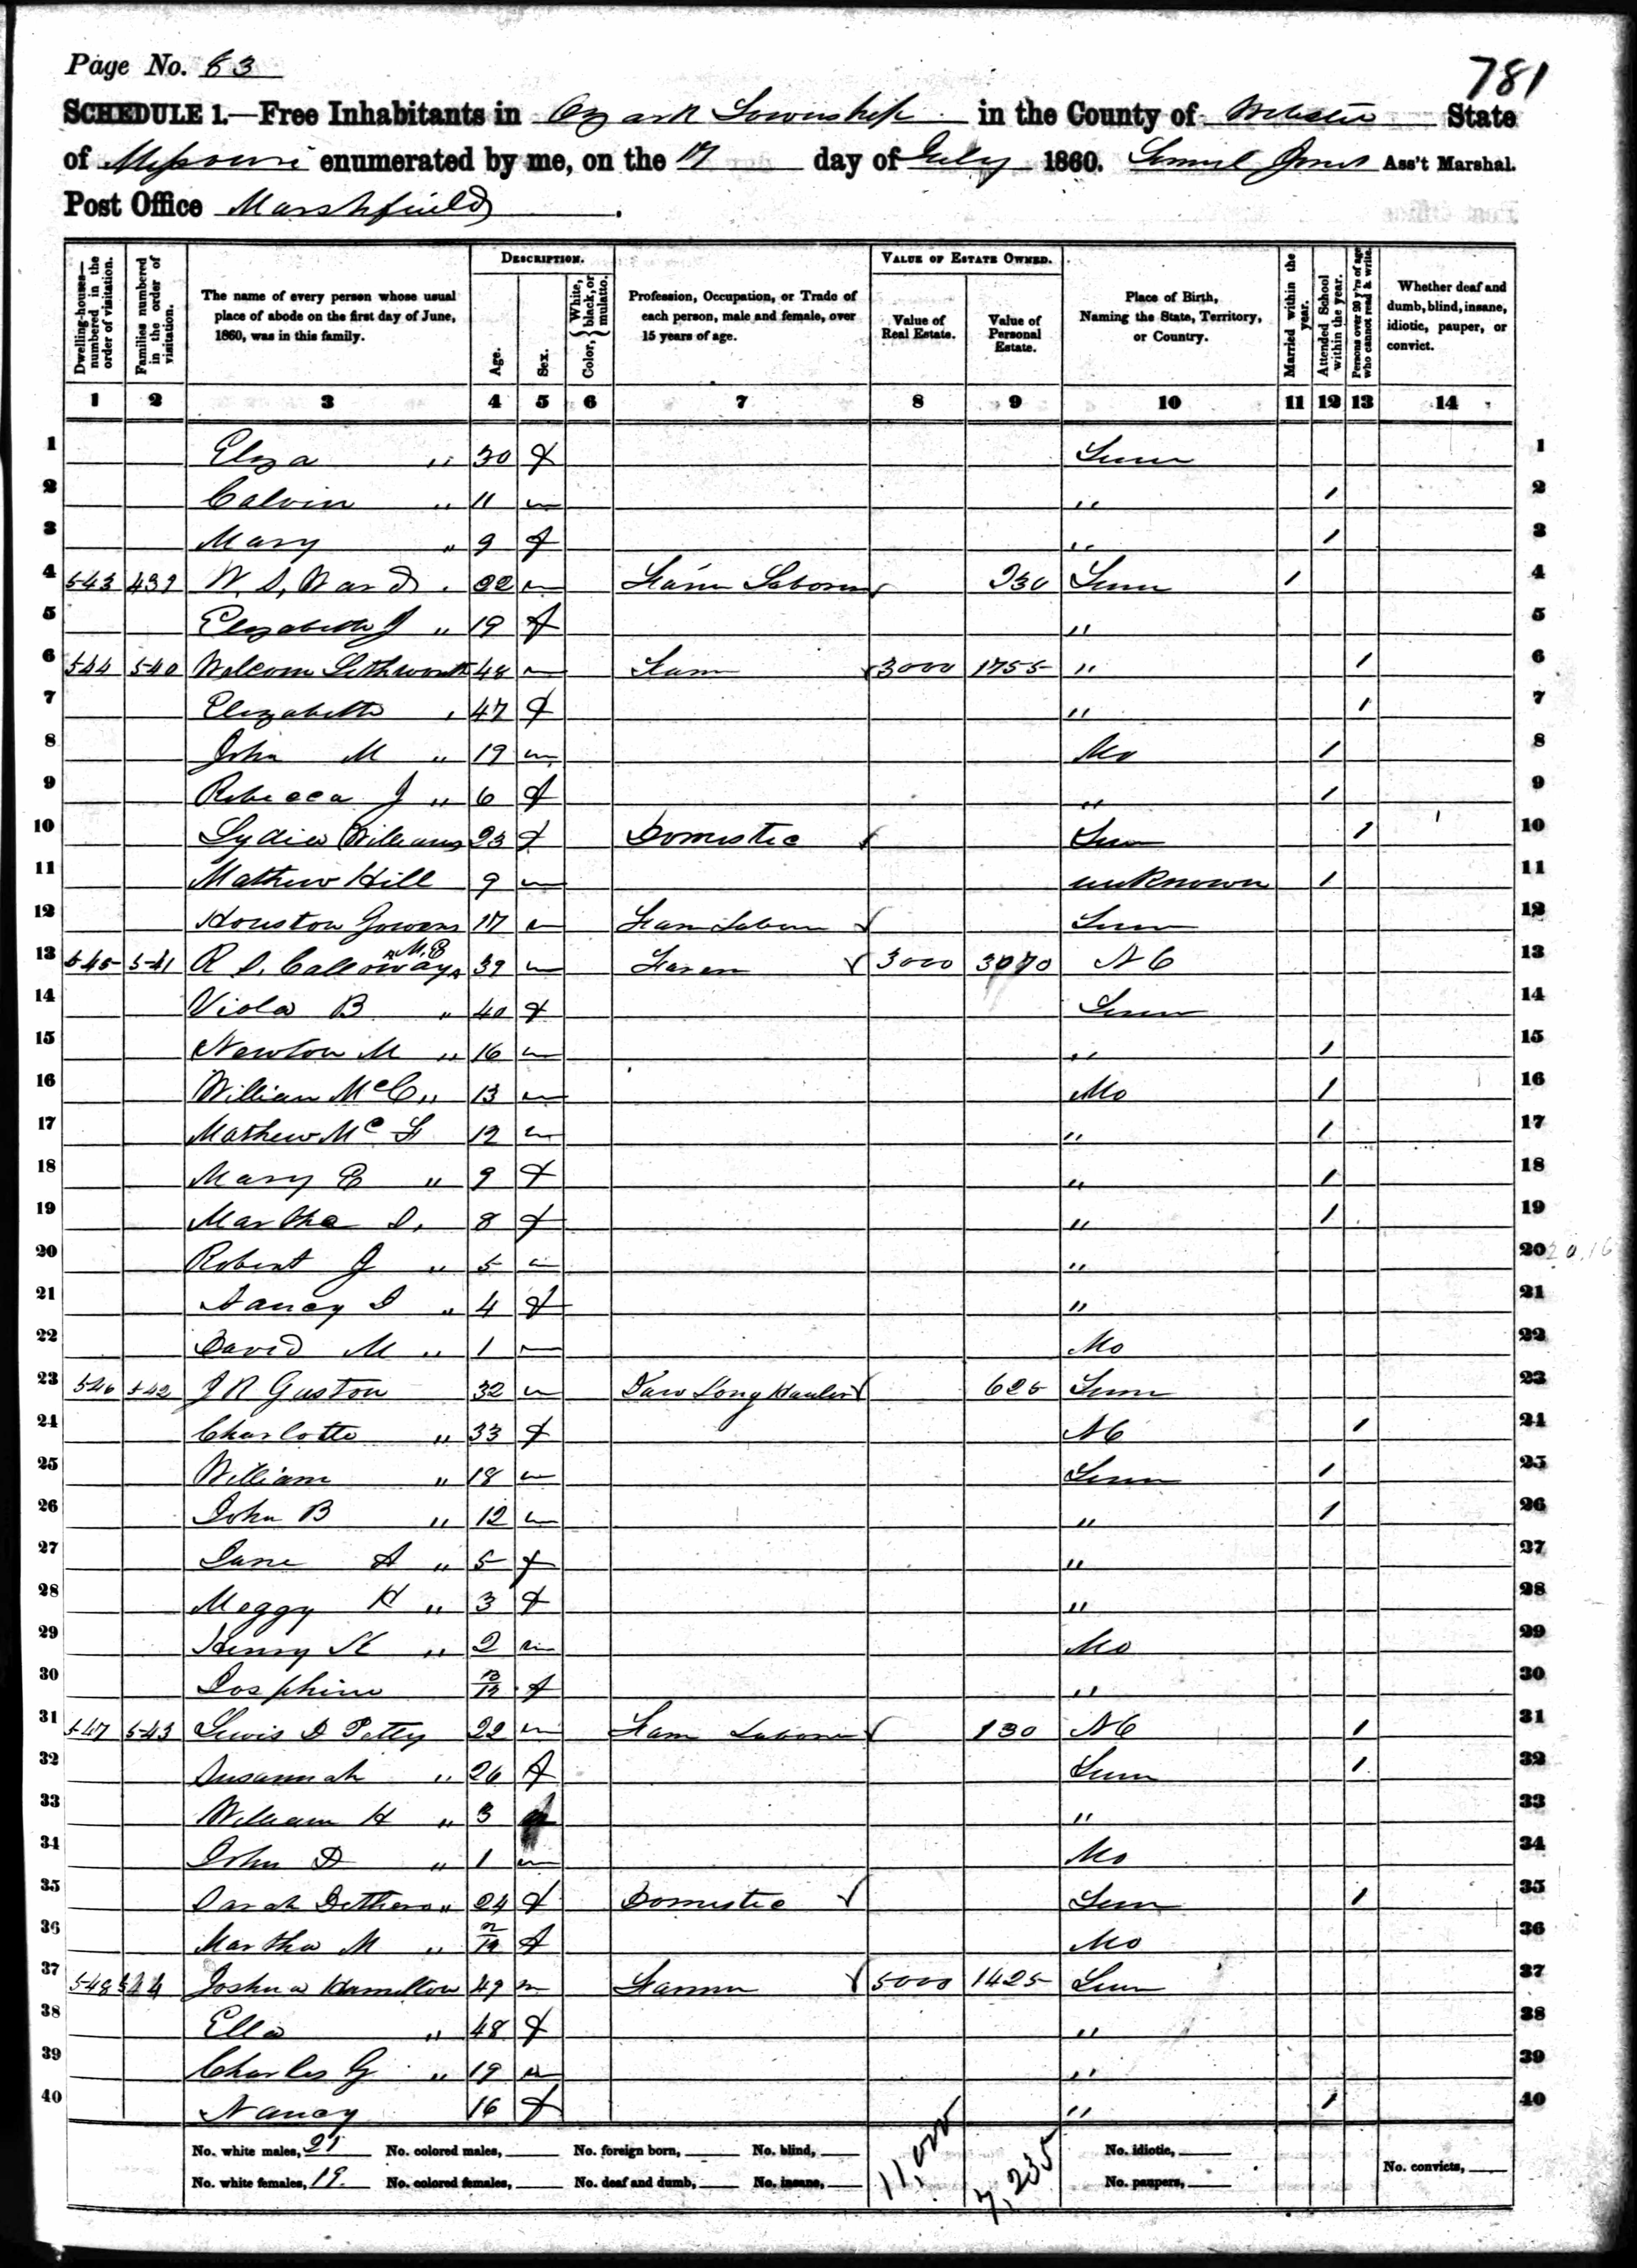 Page No. 83
781
SCHEDULE 1.—Free Inhabitants in Ozark Township in the County of Webster State
of Missouri enumerated by me, on the 17 day of July 1860. Samuel Jones Ass't Marshal.
Post Office Marshfield.
Dwelling-houses—numbered in the order of visitation.
Families numbered in the order of visitation.
The name of every person whose usual place of abode on the first day of June, 1860, was in this family.
DESCRIPTION.
Age.
Sex.
Color, { White, black, or mulatto.
Profession, Occupation, or Trade of each person, male and female, over 15 years of age.
VALUE OF ESTATE OWNED.
Value of Real Estate.
Value of Personal Estate.
Place of Birth, Naming the State, Territory, or Country.
Married within the year.
Attended School within the year.
Persons over 20 y'rs of age who cannot read & write.
Whether deaf and dumb, blind, insane, idiotic, pauper, or convict.
1 2 3 4 5 6 7 8 9 10 11 12 13 14
1 Eliza " 30 f Tenn 1
2 Calvin " 11 m " / 2
3 Mary " 9 f " / 3
4 543 539 W. S. Ward 22 m Farm Laborer 230 Tenn / 4
5 Elizabeth J " 19 f " 5
6 544 540 48 m Farm 3000 1755 " / 6
7 Elizabeth " 47 f " / 7
8 John M " 19 m Mo / 8
9 Rebecca J " 6 f " / 9
10 Lydia Williams 23 f Domestic Tenn / 10
11 Mathew Hill 9 m unknown / 11
12 Houston Gowens 17 m Farm Labor Tenn 12
13 545 541 R S. Calloway M.E 39 m Farmer 3000 3070 NC 13
14 Viola B " 40 f Tenn 14
15 Newton M " 16 m " / 15
16 William McC " 13 m Mo / 16
17 Mathew Mc F 12 m " / 17
18 Mary E " 9 f " / 18
19 Martha S. 8 f " / 19
20 Robert J " 5 m " 20
21 Nancy S " 4 f " 21
22 David M " 1 m Mo 22
23 546 542 J R Guston 32 m Saw Long Hauler 625 Tenn 23
24 Charlotte " 33 f NC / 24
25 William " 18 m Tenn / 25
26 John B " 12 m " / 26
27 Jane A " 5 f " 27
28 Meggy H " 3 f " 28
29 Henry K " 2 m Mo 29
30 Josphine f " 30
31 547 543 Lewis D Petty 22 m Farm Laborer 130 NC / 31
32 Susannah " 26 f Tenn / 32
33 William H " 3 m " 33
34 John D " 1 m Mo 34
35 Sarah " 24 f Domestic Tenn / 35
36 Martha M " 2/12 f Mo 36
37 548 544 Joshua Hamilton 49 m Farmer 5000 1425 Tenn 37
38 Ella " 48 f " 38
39 Charles G " 19 m " 39
40 Nancy 16 f " / 40
No. white males, 21 No. colored males, No. foreign born, No. blind, 11,000 7,235 No. idiotic,
No. white females, 19. No. colored females, No. deaf and dumb, No. insane, No. paupers, No. convicts,